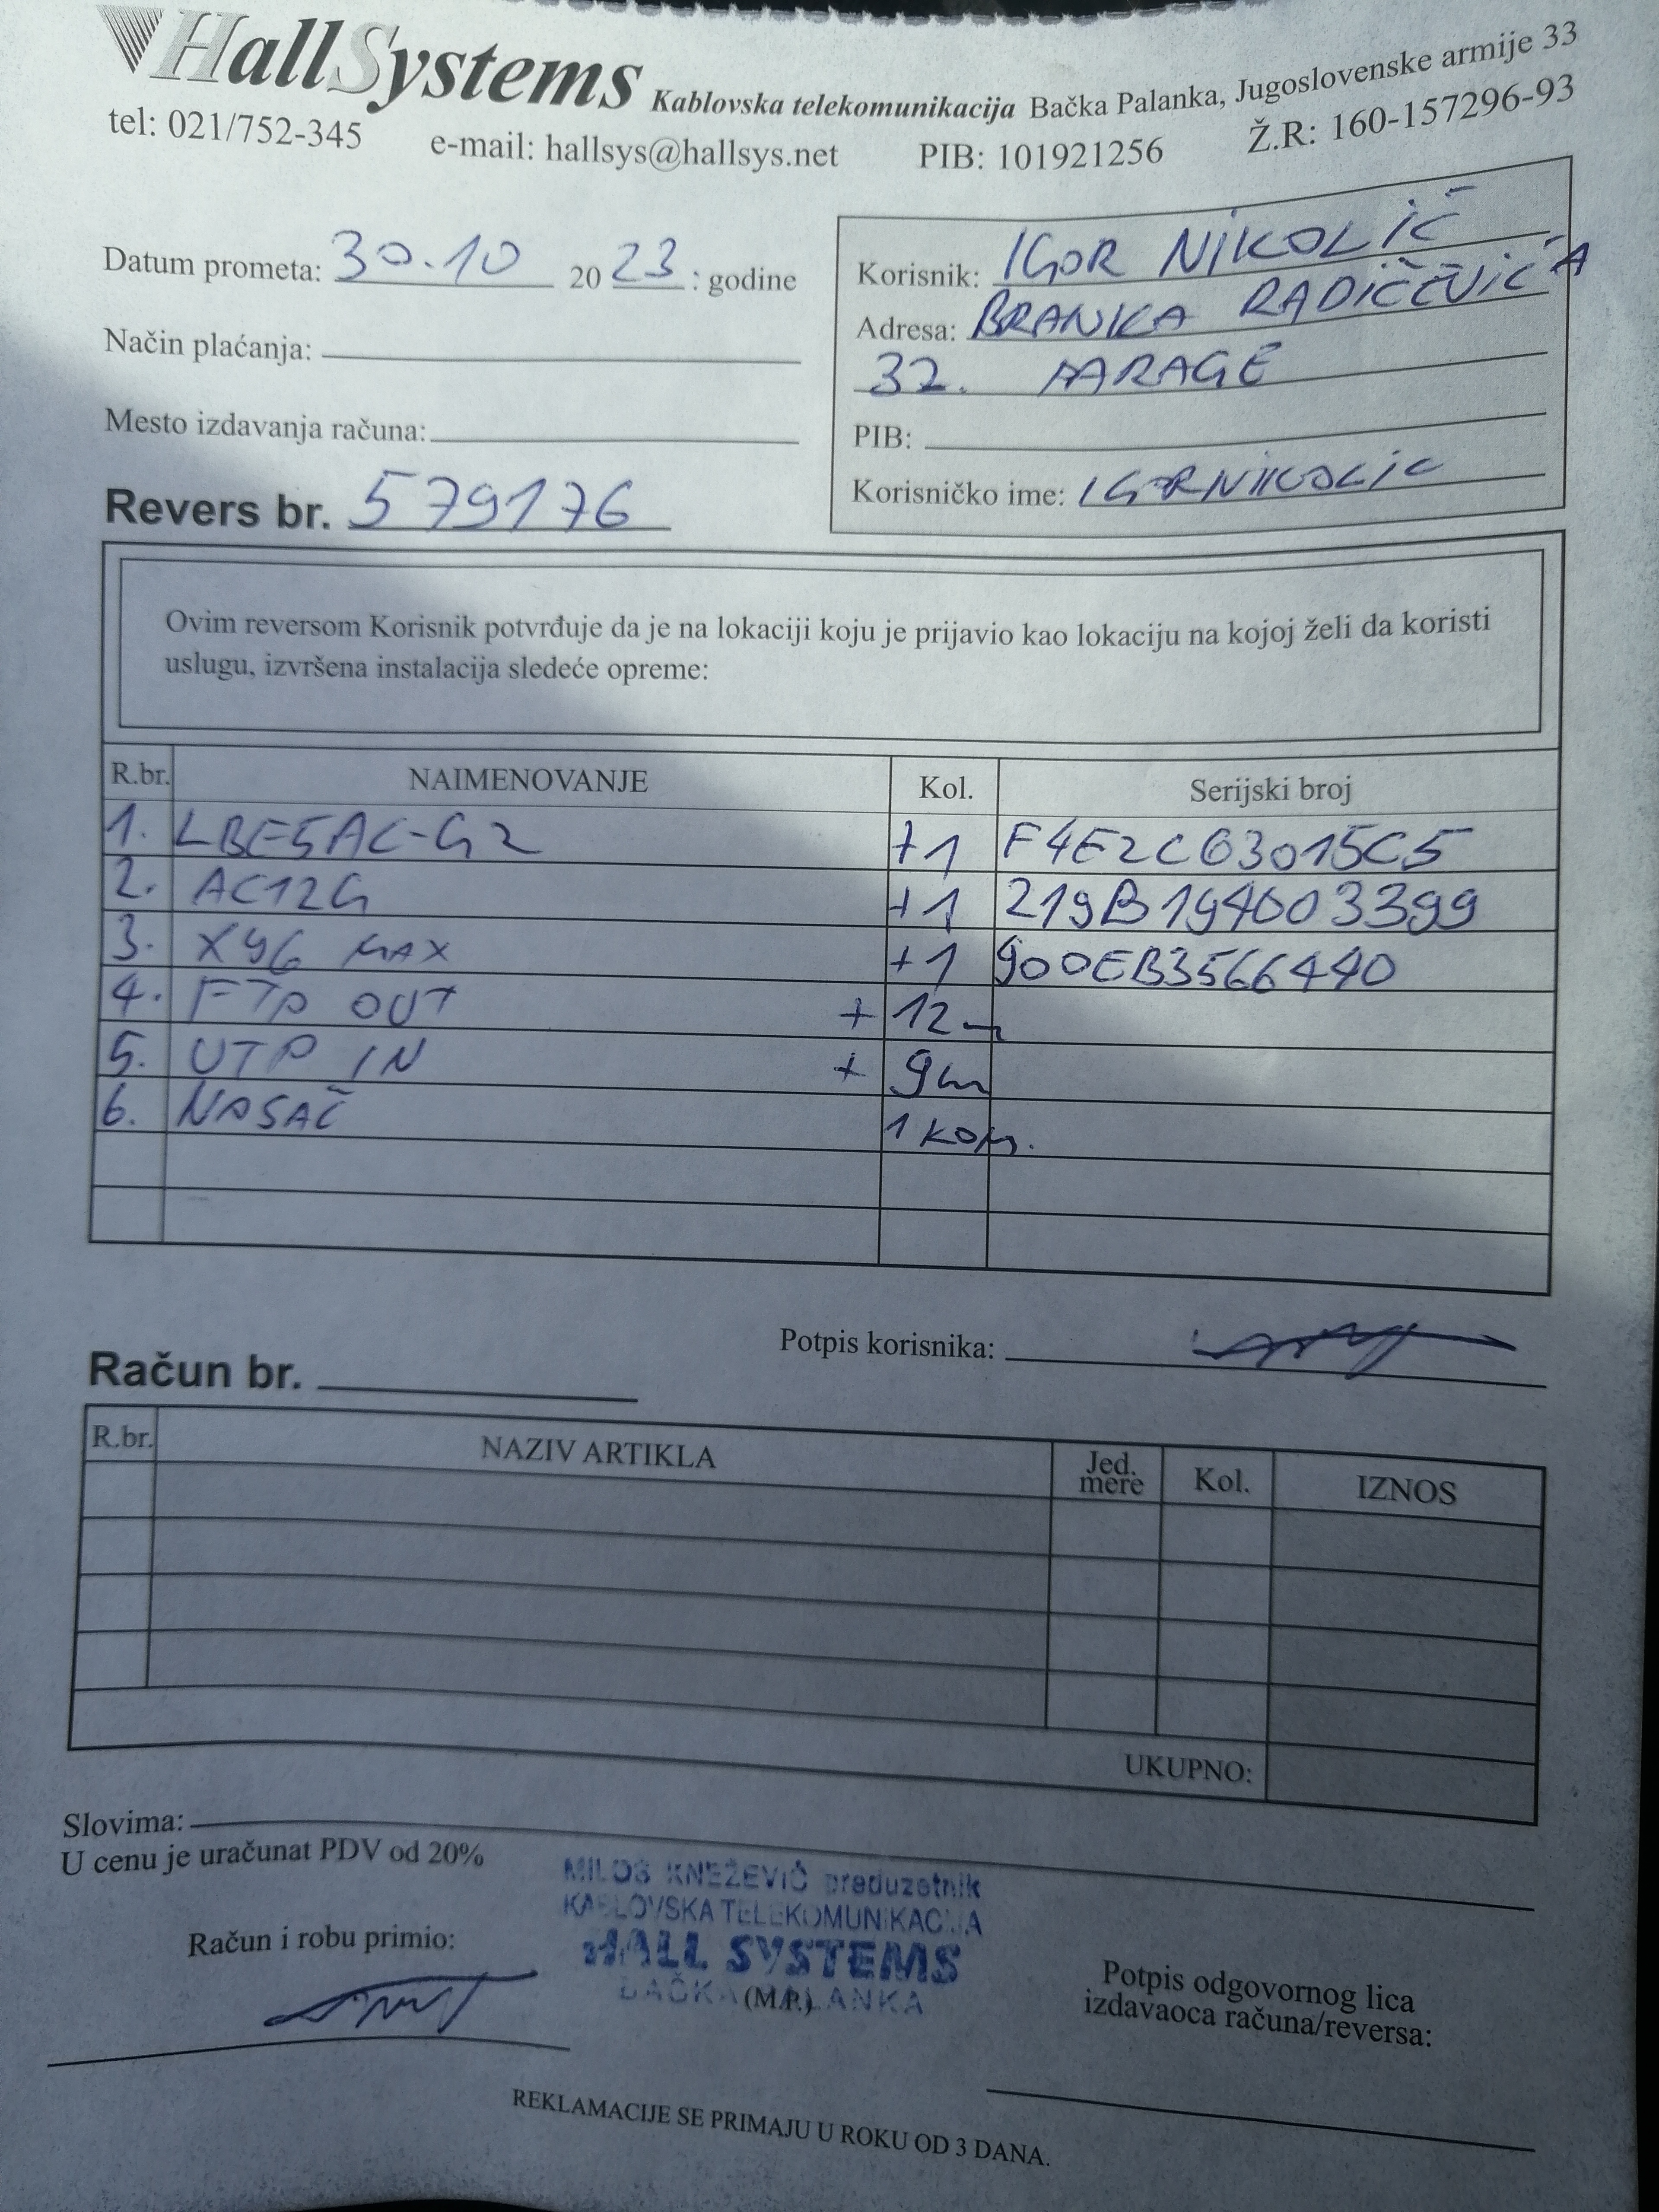 HallSystems Kablovska telekomunikacija Bačka Palanka, Jugoslovenske armije 33
tel: 021/752-345 e-mail: hallsys@hallsys.net PIB: 101921256 Ž.R: 160-157296-93
Datum prometa: 30.10 20 23 : godine
Način plaćanja:
Mesto izdavanja računa:
Revers br. 579176
Korisnik: IGOR NIKOLIĆ
Adresa: BRANKA RADIČEVIĆA
32. PARAGE
PIB:
Korisničko ime: IGORNIKOLIC
Ovim reversom Korisnik potvrđuje da je na lokaciji koju je prijavio kao lokaciju na kojoj želi da koristi
uslugu, izvršena instalacija sledeće opreme:
R.br. NAIMENOVANJE Kol. Serijski broj
1. LBE5AC-G2 +1 F4E2C63015C5
2. AC12G +1 219B194003399
3. X96 MAX +1 900EB3566440
4. FTP OUT + 12m
5. UTP IN + 9m
6. NOSAČ 1 KOM.
Potpis korisnika:
Račun br.
R.br. NAZIV ARTIKLA Jed. mere Kol. IZNOS
UKUPNO:
Slovima:
U cenu je uračunat PDV od 20%
MILOŠ KNEŽEVIĆ preduzetnik
KABLOVSKA TELEKOMUNIKACIJA
HALL SYSTEMS
BAČKA PALANKA
(M.P.)
Račun i robu primio:
Potpis odgovornog lica
izdavaoca računa/reversa:
REKLAMACIJE SE PRIMAJU U ROKU OD 3 DANA.